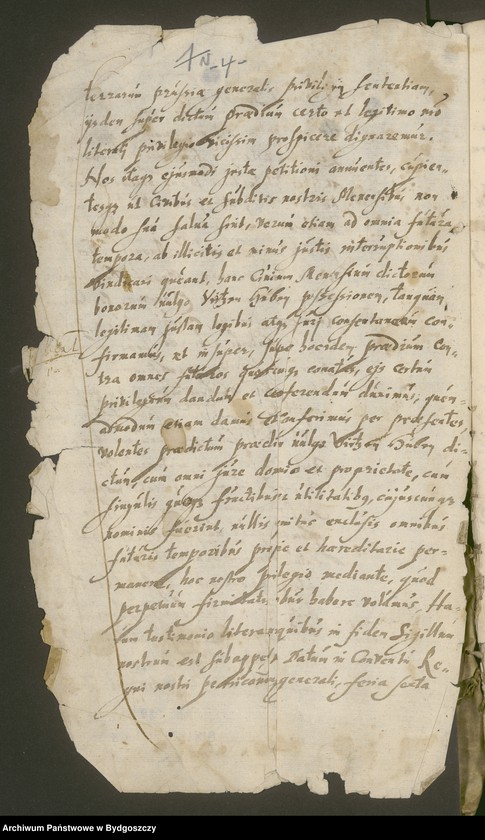 N. 4.
terrarum prussiæ generalis privilegii sententiam,
ijsdem super dictum prædium certo et legitimo
literatj privilegio vicissim prospicere dignaremur.
Nos itaqz ejusmodi justæ petitioni annuentes, cupien-
tesqz ut Civibus et subditis nostris Mevensibus non
modo sua salva sint, verum etiam ad omnia futura
tempora, ab illicitis et minus justis interruptionibus
vindicari queant, hanc Civium Mevensium dictorum
bonorum vulgo Huben possessionem, tanquam
legitimam justam legibus atqz jurj consentaneam con-
firmamus, et insuper, supe hoc eodem prædium con-
tra omnes futuros quoscunqz conatus, ejs certum
privilegium dandum et conferendum duximus, quem-
admodum etiam damus et conferimus per præsentes,
volentes prædictum prædiu vulgo Huben di-
ctum, cum omni jure dominio et proprietate, cum
singulis quibusqz fructibus et utilitatibq, cujuscunqz
nominis fuerint, nullis penitus exclusis omnibus
futuris temporibus prope et hæreditarie per-
manere, hoc nostro privilegio mediante, quod
perpetuum firmitatis robur habere volumus, Ha-
rum testimonio literarum quibus in fidem Sigillum
nostrum est subappēs. Datum in Conventu Re-
gni nostri generali, feria sexta
Archiwum Państwowe w Bydgoszczy